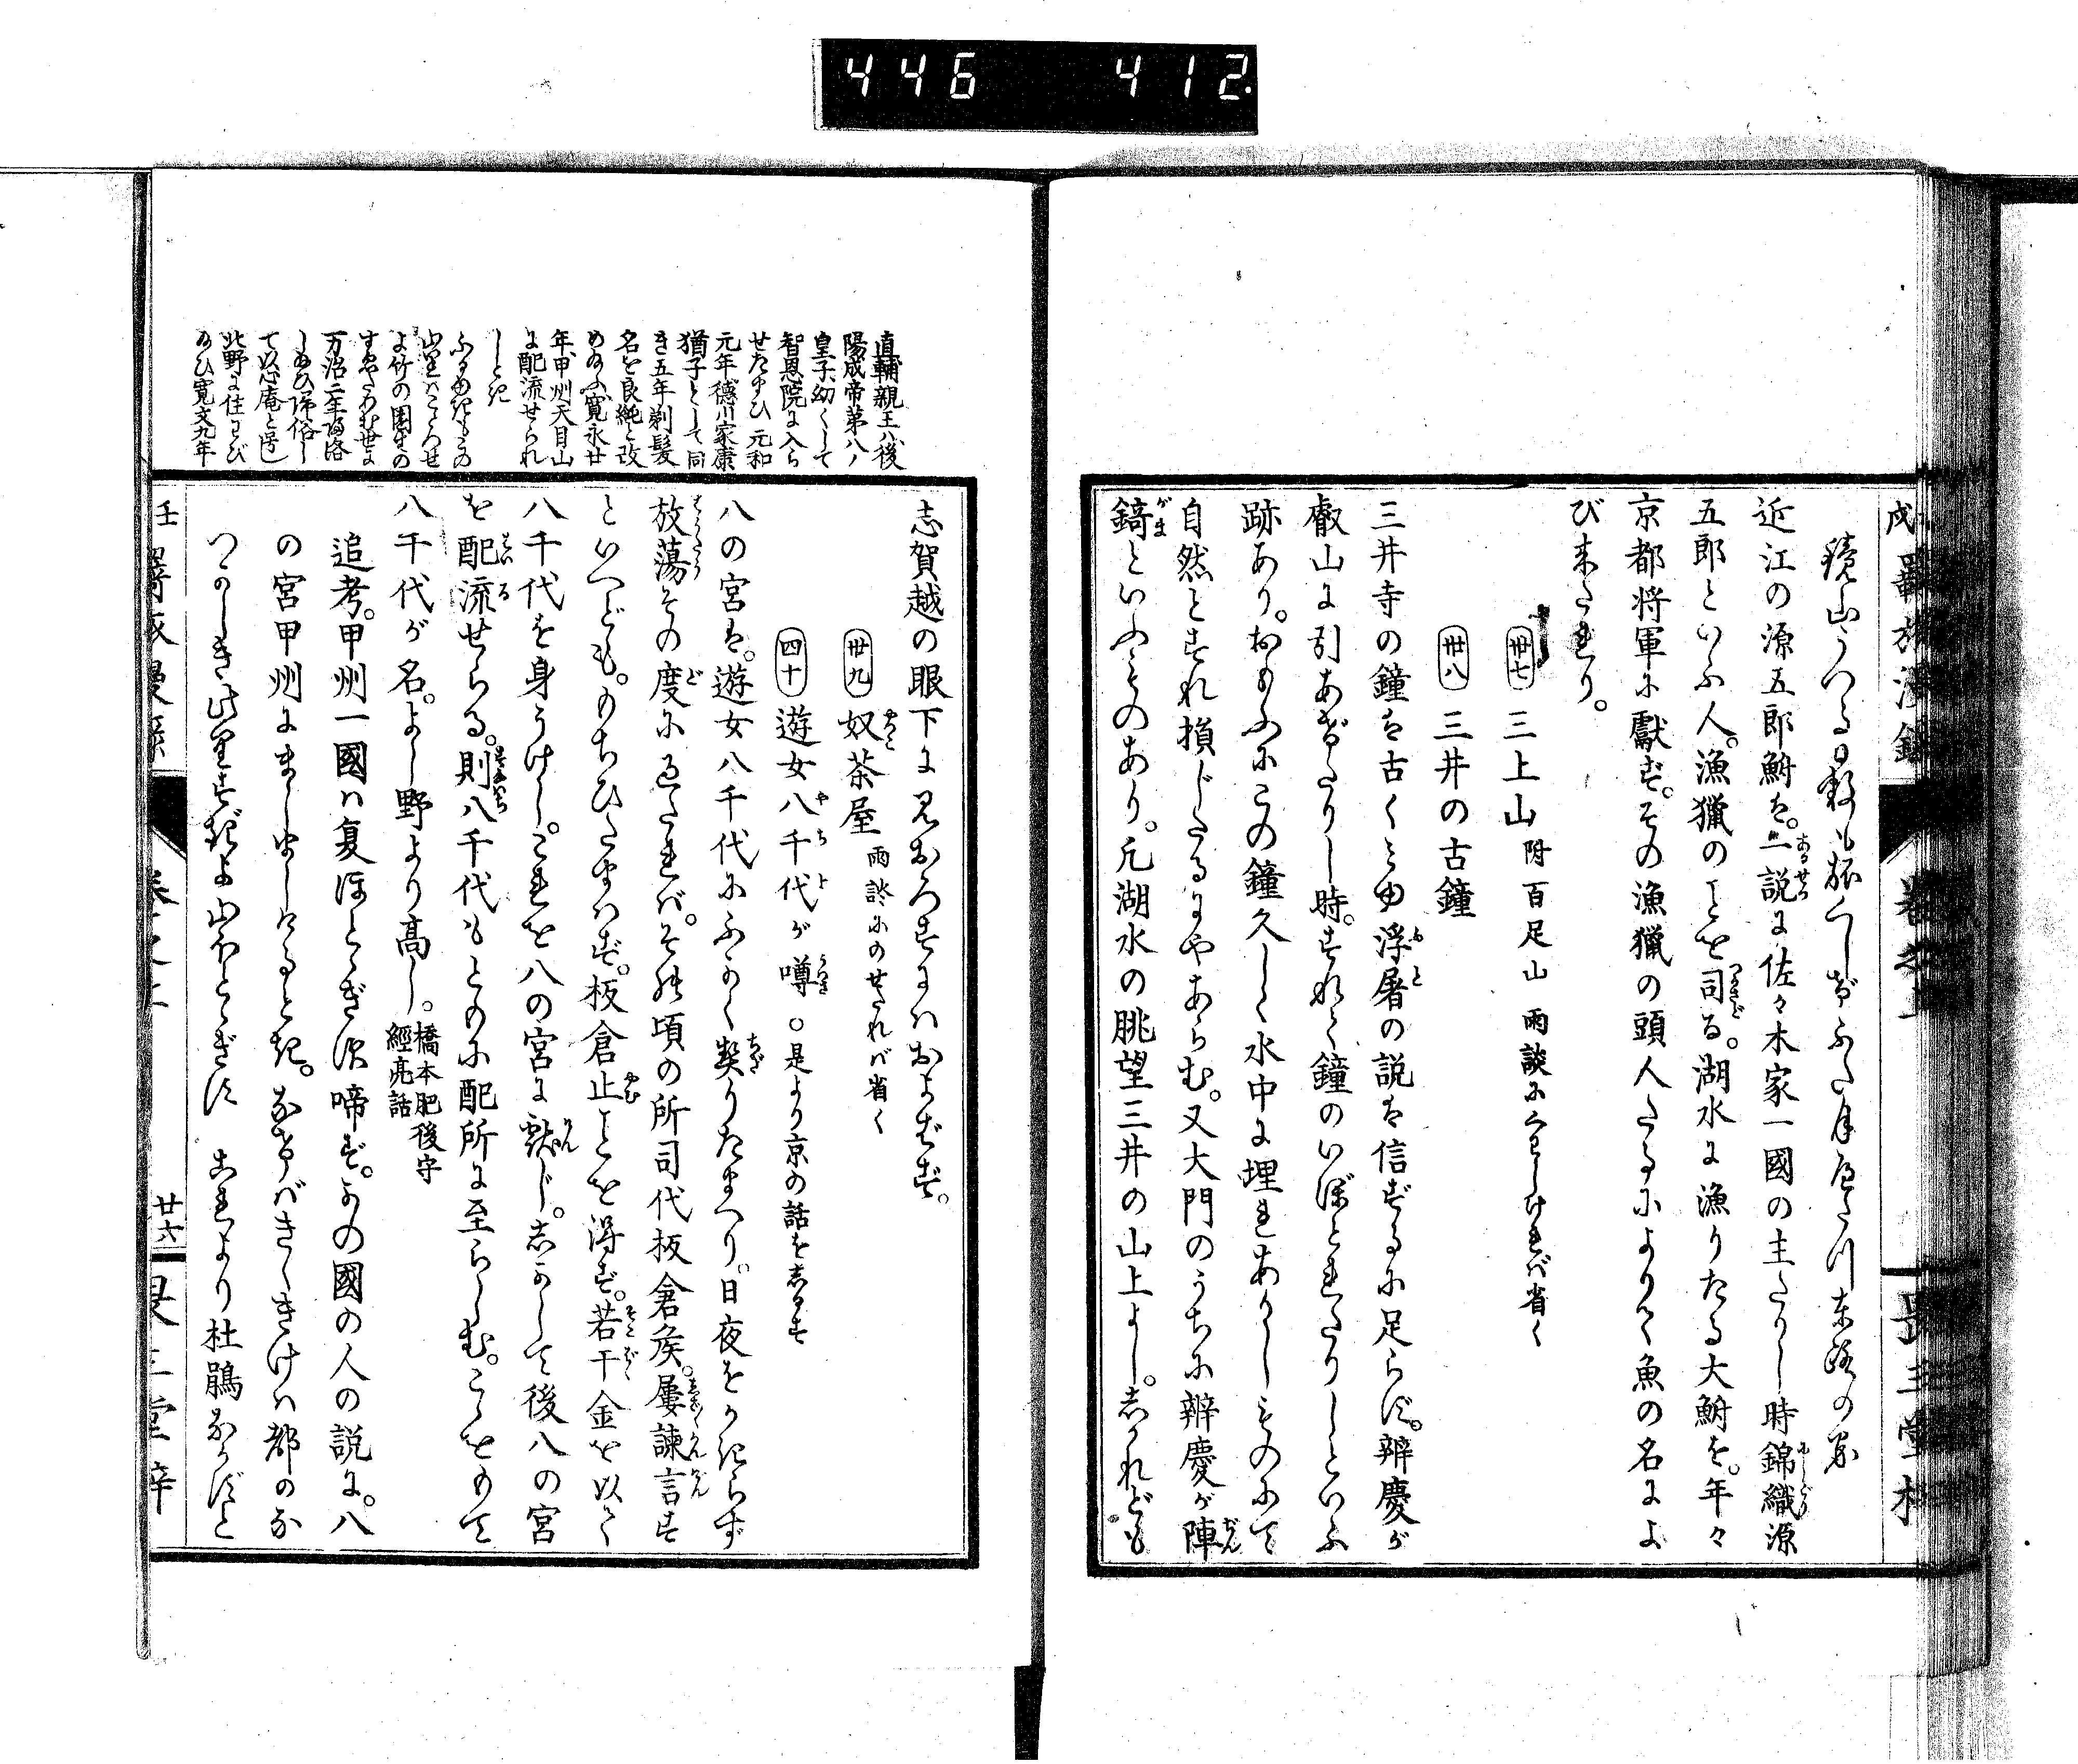 446 412
鏡山うつる日數も旅
近江の源五郎鮒は。一説に佐々木家一國の主たりし時錦織源
五郎といふ人。漁獵のことを司る。湖水に漁りたる大鮒を。年々
京都将軍に獻ず。その漁獵の頭人たるによりて魚の名によ
び来たれり。
卅七 三上山 附 百足山 雨談にくはしければ省く
卅八 三井の古鐘
三井寺の鐘は古くみゆ浮屠の説は信ずるに足らず。辨慶が
叡山に引あげたりし時。すれて鐘のいぼとれたりしといふ
跡あり。おもふにこの鐘久しく水中に埋れありしものにて
自然とすれ損じたるにやあらむ。又大門のうちに辨慶が陣
鍋といふものあり。凡湖水の眺望三井の山上よし。しかれども
志賀越の眼下に見おろすにはおよばず。
卅九 奴茶屋 雨談にのせたれば省く
四十 遊女八千代が噂 ○是より京の話をしるす
八の宮は。遊女八千代にふかく契りたまへり。日夜をかぎらず
放蕩その度に過たれば。その頃の所司代板倉矦。屢諫言す
といへども。もちひたまはず。板倉止ことを得ず。若干金を以て
八千代を身うけし。これを八の宮に獻じ。しかして後八の宮
を配流せらる。則八千代もともに配所に至らしむ。こゝをもて
八千代が名。よし野より高し。 橋本肥後守
經亮話
追考。甲州一國は夏ほとゝぎす啼ず。かの國の人の説に。八
の宮甲州にましましけるとき。
なけばきくきけば都の
つかしき此里すぎよ山ほとゝぎす これより杜鵑なかずと
直輔親王ハ後
陽成帝第八ノ
皇子幼くして
智恩院に入ら
せたまひ 元和
元年德川家康
猶子として同
き五年剃髪
名を良純と改
めたまふ寛永廿
年甲州天目山
に配流せられ
しとき
ふるゆきも
山里は
よ竹の園生の
すゑたわむ世に
万治二年歸洛
したまひ歸俗し
て以心庵と號し
北野に住わび
たまひ寛文九年
廿六